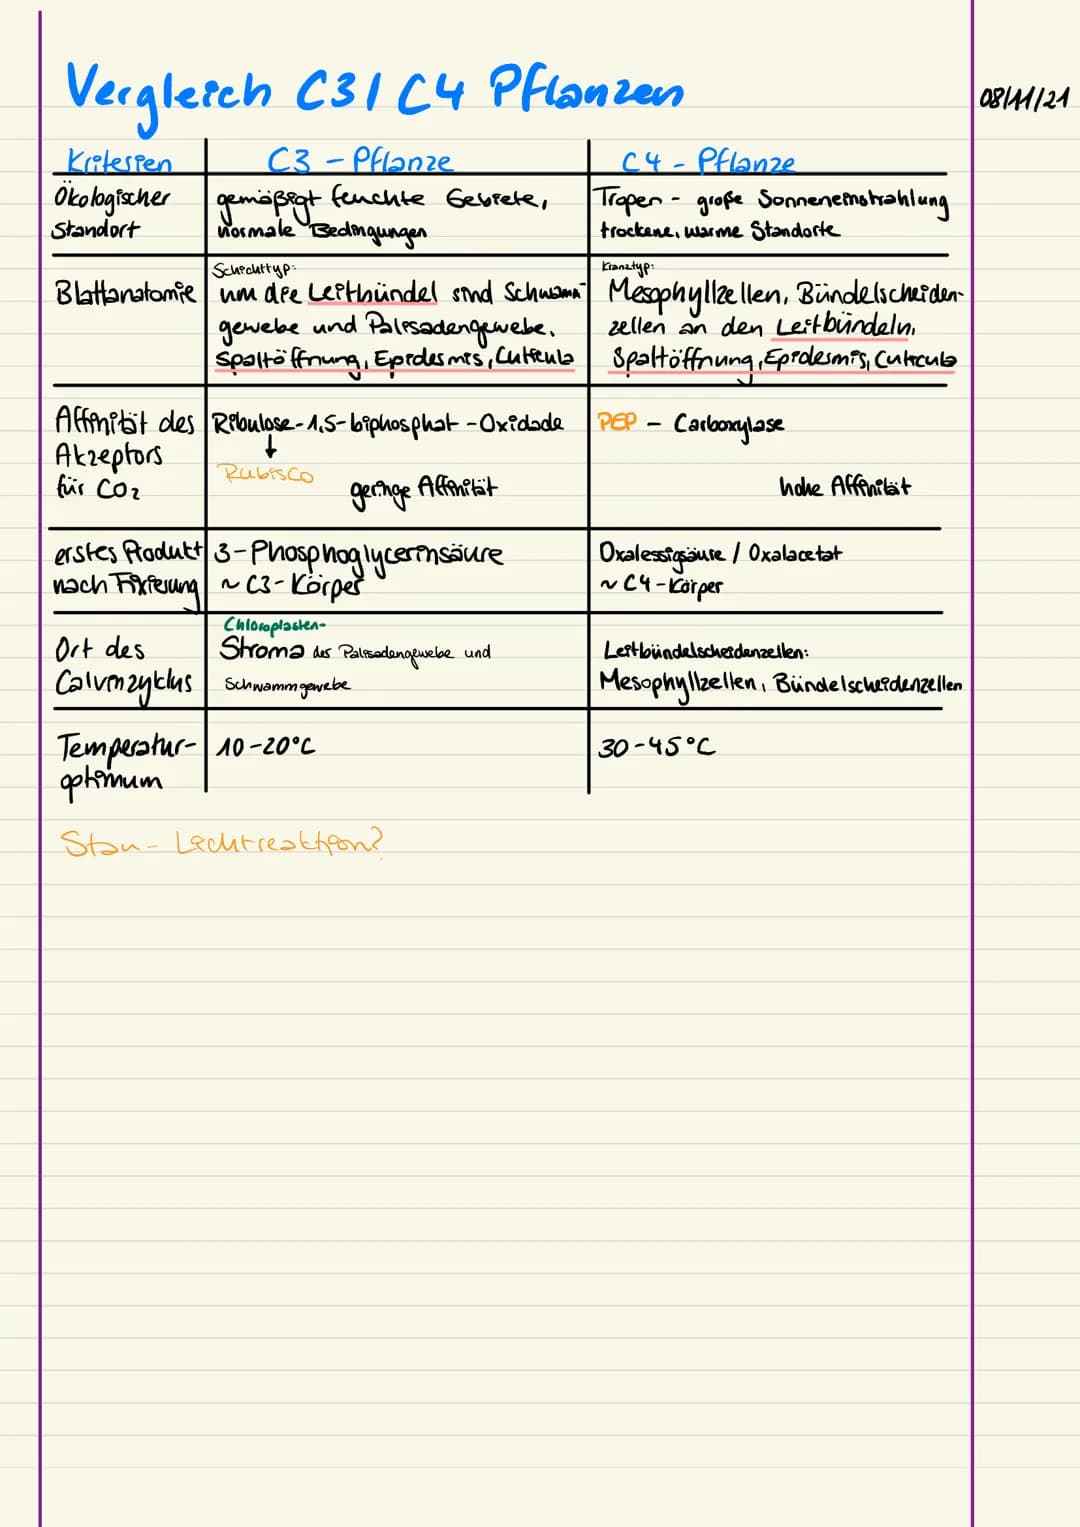 Vergleich C3/C4 Pflanzen
08/11/21
Kriterien C3-Pflanze C4-Pflanze
Ökologischer gemäßigt feuchte Gebiete, Tropen - große Sonneneinstrahlung
Standort normale Bedingungen trockene, warme Standorte
Schichttyp: Kranztyp:
Blattanatomie um die Leitbündel sind Schwamm- Mesophyllzellen, Bündelscheiden-
gewebe und Palisadengewebe, zellen an den Leitbündeln,
Spaltöffnung, Epidermis, Cuticula Spaltöffnung, Epidermis, Cuticula
Affinität des Ribulose-1,5-biphosphat-Oxidade PEP - Carboxylase
Akzeptors ↓
für CO₂ Rubisco geringe Affinität hohe Affinität
erstes Produkt 3-Phosphoglycerinsäure Oxalessigsäure / Oxalacetat
nach Fixierung ~ C3-Körper ~ C4-Körper
Chloroplasten-
Ort des Stroma des Palisadengewebe und Leitbündelscheidenzellen:
Calvinzyklus Schwammgewebe Mesophyllzellen, Bündelscheidenzellen
Temperatur- 10-20°C 30-45°C
optimum
Stau- Lichtreaktion?